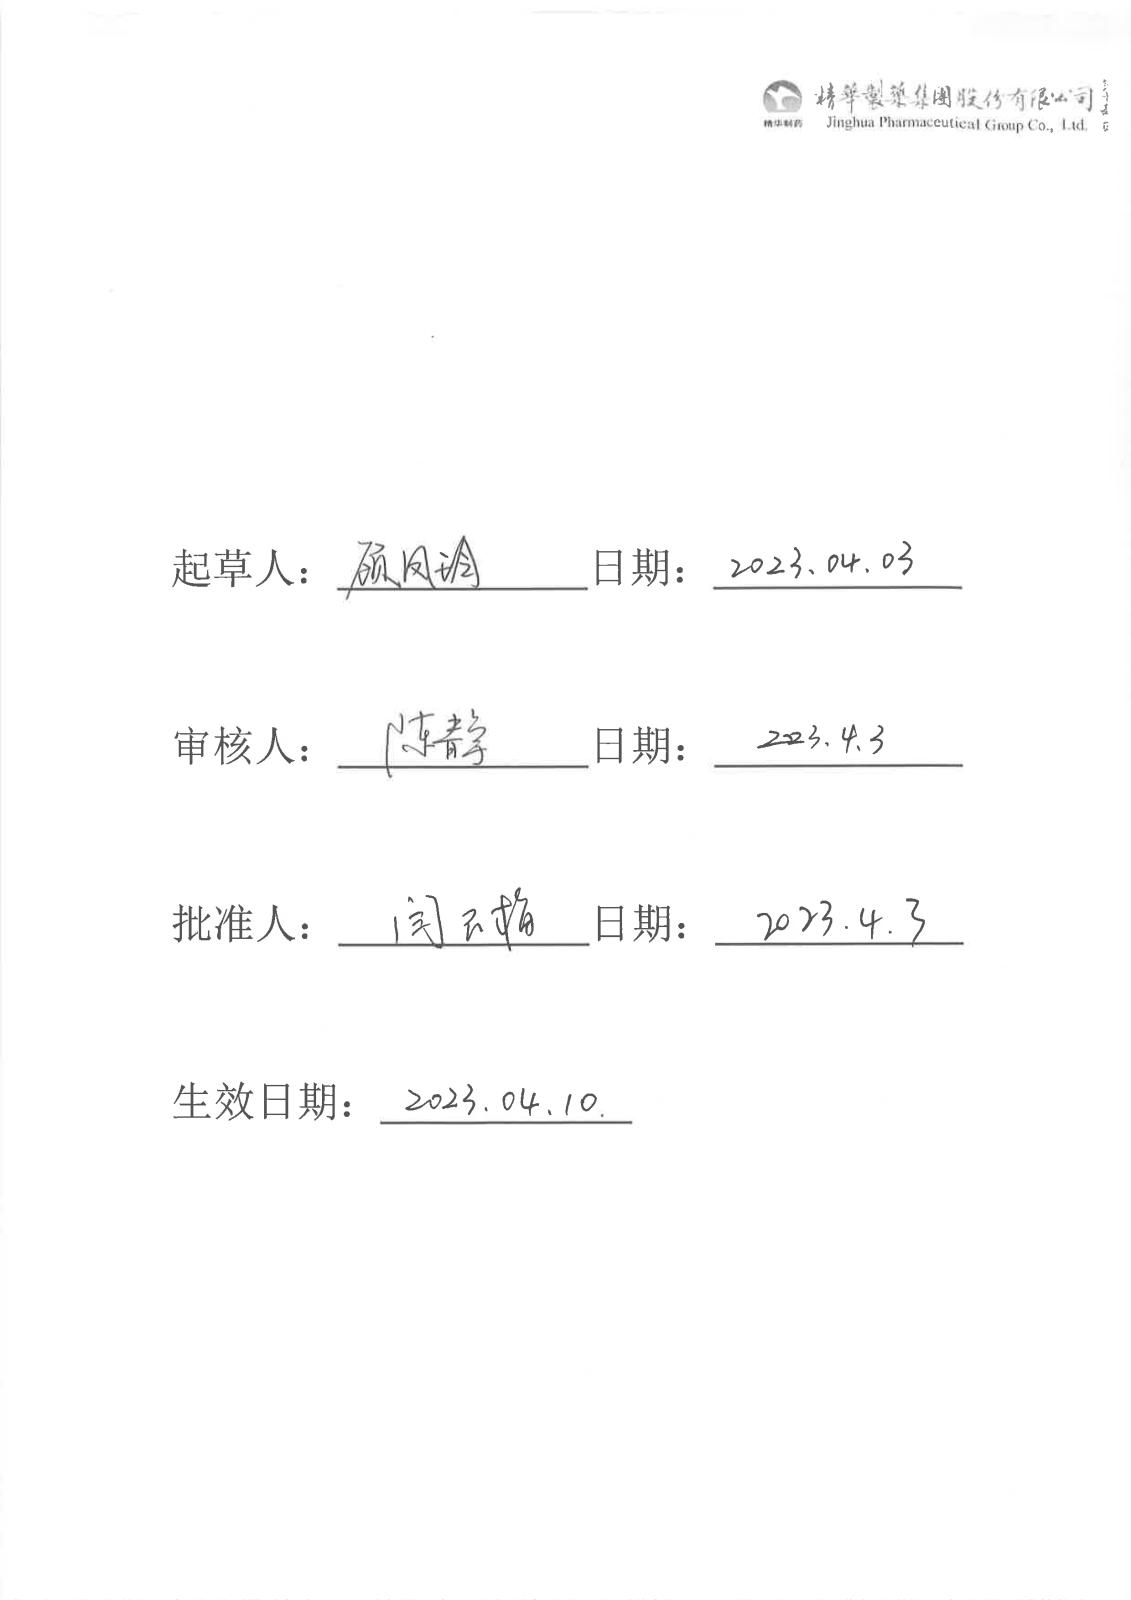 精華製藥集團股份有限公司
精华制药
Jinghua Pharmaceutical Group Co., Ltd.
起草人： 顾凤 日期： 2023.04.03
审核人： 陈静 日期： 2023.4.3
批准人： 闫云梅 日期： 2023.4.3
生效日期： 2023.04.10.